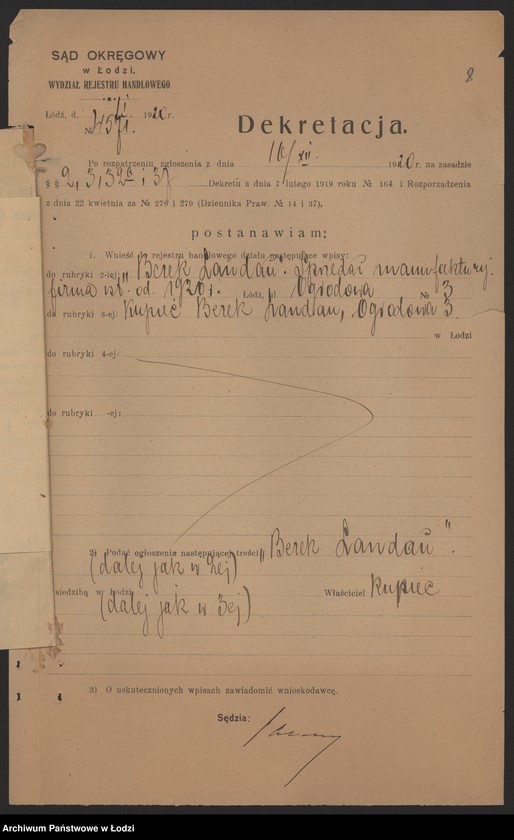 8
SĄD OKRĘGOWY
w Łodzi.
WYDZIAŁ REJESTRU HANDLOWEGO
Łódź, d. 1920 r.
№
Dekretacja.
Po rozpatrzeniu zgłoszenia z dnia 16/XII 1920 r. na zasadzie
§ § 2, 3, 32a i 37 Dekretu z dnia 7 lutego 1919 roku № 164 i Rozporządzenia
z dnia 22 kwietnia za № 278 i 279 (Dziennika Praw. № 14 i 37),
postanawiam:
1. Wnieść do rejestru handlowego działu następujące wpisy:
do rubryki 2-iej: "Berek Landau". Sprzedaż manufaktury.
firma ist. od. 1920 r. Łódź, ul. Ogrodowa № 3
do rubryki 3-ej: Kupiec Berek Landau, Ogrodowa 3.
w Łodzi
do rubryki 4-ej:
do rubryki -ej:
2) Podać ogłoszenie następującej treści "Berek Landau".
(dalej jak w 2ej)
siedzibą w Łodzi Właściciel Kupiec
(dalej jak w 3ej)
3) O uskutecznionych wpisach zawiadomić wnioskodawcę.
Sędzia:
Archiwum Państwowe w Łodzi